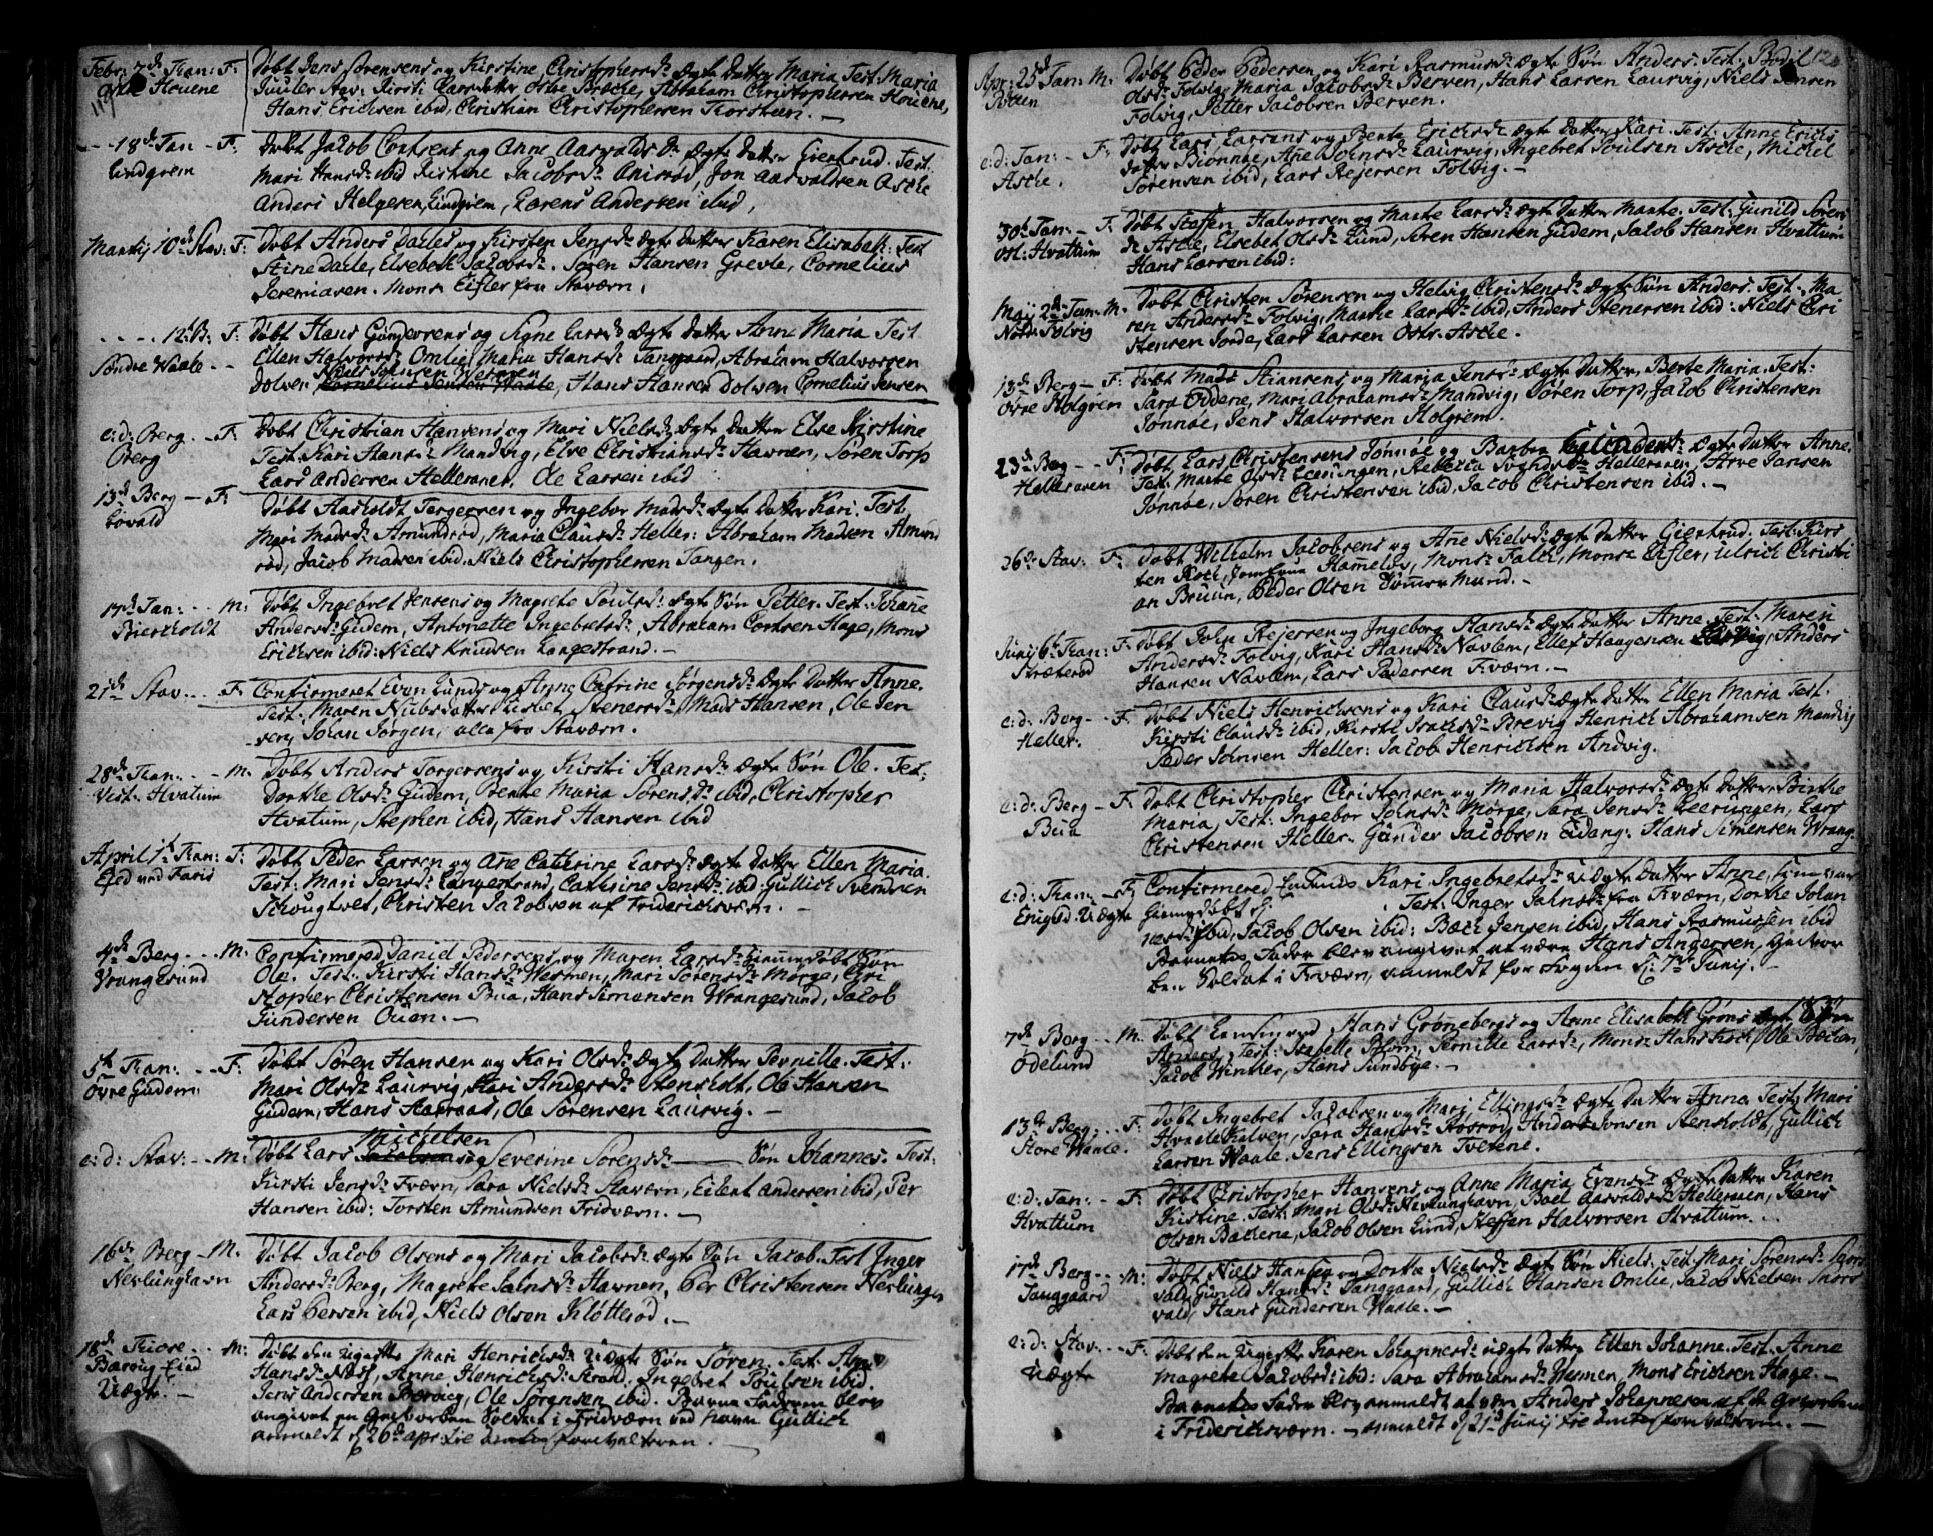 Febr: 7de Tan: F: Døbt Jens Sørensens og Kirstine Christophersd: Ægte Datter Maria Test: Maria
Houene Juuler Stav: Kirsti Clausdatter Østre Brække, Abraham Christophersen Houene,
119 Hans Ericksen ibid, Christian Christophersen Torsteen. —
18de Tan - F: Døbt Jacob Cortsens og Anne Aasvalds D: Ægte Datter Giertrud. Test:
Lindgrem Mari Hansd: ibid Kirstine Jacobsd: Anisrød, Jon Aasvaldsen Asche
Anders Helgesen, Lindgrem, Larens Andersen ibid,
Martij 10de Stav: F: Døbt Anders Dalles og Kirsten Jensd: Ægte Datter Karen Elisabeth: Test
Stine Dalle, Elsebeth Jacobsd:. Søren Hansen Grevle, Cornelius
Jeremiasen. Mons: Eisler fra Staværn.
12t B: F: Døbt Hans Gundersens og Signe Larsd: Ægte Datter Anne Maria Test
Søndre Waale - - Ellen Halvorsd: Omlie, Maria Hansd: Tanggaard, Abraham Halvorsen
Niels Johnsen Wermen
Dolven Cornelius Jensen Waale, Hans Hansen Dolven Cornelius Jensen
e:d: Berg - F: Døbt Christian Hansens og Mari Nielsd: Ægte Datter Else Kirstine
Oberg Test: Kari Hansd: Mandvig, Else Christiansd: Havnen, Søren Torp
Lars Andersen Helleraner, Ole Larsen ibid
13d Berg - F: Døbt Aasholdt Tergersen og Ingebor Madsd: Ægte Datter Kari. Test
Lovald Mari Madsd: Amundrød, Maria Clausd: Heller: Abraham Madsen Amund
rød, Jacob Madsen ibid. Niels Christophersen Tangen.
17de Tan: - - M: Døbt Ingebret Jensens og Magrete Poulsd: Ægte Søn Petter. Test: Johanne
Bierkholdt Andersd: Gudem, Antonette Ingebretsd:, Abraham Cortsen Hage, Mons
Ericksen ibid: Niels Knudsen Langestrand. —
21de Stav: - - F: Confirmeret Even Lunds og Anne Catrine Jørgensd: Ægte Datter Anne.
Test: Maren Nubsdatter, Lisbet Stenersd:, Mads Hansen, Ole Jen
sen, Johan Jørgen, alle fra Staværn.
28de Tan: - - M: Døbt Anders Torgersens og Kirsti Hansd: Ægte Søn Ole. Test:
Vest: Hvatum Dorthe Olsd: Gudem, Bente Maria Sørensd: ibid, Christopher
Hvatum, Stephen ibid, Hans Hansen ibid
April 1t Tan: F: Døbt Peder Larsen og Ane Catherine Larsd: Ægte Datter Ellen Maria.
Ejed ved Faris Test: Mari Jensd: Langestrand, Catherine Jensd: ibid: Gullich Svendsen
Schougtvet, Christen Jacobsen af Friderichsværn. —
4de Berg. - - M: Confirmered Daniel Pedersens og Maren Larsd: Hiemmedøbt Søn
Vrangesund Ole. Test: Kirsti Hansd: Wermen, Mari Sørensd: Mørge, Chri
stopher Christensen Bua, Hans Simensen Wrangesund, Jacob
Gundersen Ouen. —
5te Tan: - - F: Døbt Søren Hansen og Kari Olsd: Ægte Datter Pernille. Test:
Øvre Gudem: Mari Olsd: Laurvig, Kari Andersd: Stensholt, Ole Hansen
Gudem, Hans Aaraas, Ole Sørensen Laurvig. —
Michelsen
e:d: Stav: - - M: Døbt Lars Jacobsens og Severine Sørensd: —— Søn Johannes. Test:
Kirsti Jensd: Fværn, Sara Nielsd: Stavern, Eilert Andersen ibid, Per
Hansen ibid: Torsten Amundsen Fridværn. —
16de Berg - M. Døbt Jacob Olsens og Mari Jacobsd: Ægte Søn Jacob. Test Inger
Nevlunghavn Andersd: Berg, Magrete Jahnsd: Havnen, Per Christensen Nevlunge
Lars Persen ibid, Niels Olsen Klotterød. —
18de - - M: Døbt den Ugifte Mari Henrichsd: Uægte Søn Søren. Test: Ane
Barvig Eied Hansd: Næss, Anne Henrichsd: Strand, Ingebret Poulsen ibid.
Uægte. - Jens Andersen Barvig, Ole Sørensen ibid. Barne Faderen blev
angivet en Geworben Soldat i Fridværn ved navn Gullich
anmeldt d 26de April forvalteren. —
12
Apr: 25de Tan: M. Døbt Peder Pedersen og Kari Rasmusd: Ægte Søn Anders. Test: Bodil
Olsd: Folvig, Maria Jacobsd: Berven, Hans Larsen Laurvig, Niels Jensen
Folvig, Petter Jacobsen Berven.
e:d: Tan: - F: Døbt Lars Larsens og Bente Ericksd: Ægte Datter Kari. Test: Anne Ericks
Asche. datter Bionnæs, Ane Johnsd: Laurvig, Ingebret Poulsen Asche, Michel
Sørensen ibid, Lars Rejersen Folvig. —
30te Tan: - F. Døbt Steffen Halvorsen og Marthe Larsd: Ægte Datter Marthe. Test: Gunild Sørens
Øst: Hvattum D: Asche, Elsebet Olsd: Lund, Søren Hansen Gudem, Jacob Hansen Hvattum
Hans Larsen ibid:
Maij 2de Tan: M: Døbt Christen Sørensen og Helvig Christensd: Ægte Søn Anders. Test: Ma
Nord: Folvig ren Andersd: Folvig, Marthe Larsd: ibid, Anders Stenersen ibid: Niels Chri
stensen Jorde, Lars Larsen Østr: Asche.
13de Berg - F: Døbt Mads Stiansens og Maria Jensd: Ægte Datter, Berte Maria. Test:
Øvre Holgrem Sara Oddene, Mari Abrahamsd: Mandvig, Søren Torp, Jacob Christensen
Jonnøe, Jens Halvorsen Holgrem.
23de Berg - - F: Døbt Lars Christensens Jonnøe og Barbra Ægte Datter Anne.
Helleraaen Test: Marthe Olsd: Leeningen, Rebecca Svendsd: Helleraaen, Arve Jansen
Jonnøe, Søren Christensen ibid, Jacob Christensen ibid. —
26de Stav: F: Døbt Wilhelm Jacobsens og Ane Nielsd: Ægte Datter Giertrud. Test: Kirs
ten Koch, Jomfrue Hammeløv, Mons: Falch, Mons: Eisler, Ulrich Christi
an Bruun, Peder Olsen Tømermand. —
Junij 6te Tan: F: Døbt John Rejersen og Ingeborg Hansd: Ægte Datter Anne. Test: Maren
Stræterød Andersd: Folvig, Kari Hansd: Navlem, Ellef Haagensen Anders
Hansen Navlem, Lars Pedersen Fværn. —
e:d: Berg - - F: Døbt Niels Henrichsens og Kari Clausd: Ægte Datter Ellen Maria Test:
Heller. Kirsti Clausd: ibid, Kirsti Isachsd: Brevig, Henrich Abrahamsen Mandvig
Peder Johnsen Heller: Jacob Henrichsen Andvig.
e:d: Berg - F: Døbt Christopher Christensen og Maria Halvorsd: Ægte Datter Birthe
Bua Maria, Test: Ingebor Johnsd: Mørge, Sara Jensd: Leeningen, Lars
Christensen Heller. Gunder Jacobsen Eidang: Hans Simensen Wrang.
e:d: Tan: - F: Confirmered Kari Ingebretsd: Uægte Datter Anne, som var
Uægte hiemmedøbt d: Test: Inger Jahnsd: fra Fværn, Dorthe Johan
nesd: ibid, Jacob Olsen ibid: Bærth Jensen ibid, Hans Rasmussen ibid
Barnets Fader blev angivet at være Hans Andersen, Gewor
ben Soldat i Fværn, anmeldt for Fogden d: 7de Junij. —
7de Berg - - M: Døbt Hans Grønebergs og Anne Elisabeth Grøns Ægte Søn
Ødelund Anders, Test: Isabelle Blom, Pernille Larsd:, Mons: Hans Koch, Ole Bochen,
Jacob Winther, Hans Sundbye. —
13de Berg. - F: Døbt Ingebret Jacobsen og Mari Ellingsd: Ægte Datter Anna Test: Mari
Store Waale. Hvaale Kalven, Sara Hansd: Rossøy, Anders Jonsen Stensholdt, Gullich
Larsen Waale. Jens Ellingsen Tvetene.
e:d: Tan: - F: Døbt Christopher Hansens og Anne Maria Evensd: Ægte Datter Karen
Hvattum Kistine. Test: Mari Olsd: Nevlunghavn, Boel Aasvaldsd: Helleraaen, Hans
Olsen Bachene, Jacob Olsen Lund, Steffen Halvorsen Hvattum.
17de Berg - - M: Døbt Niels Hansen og Dorthe Nielsd: Ægte Søn Niels. Test: Mari Sørensd: Snors
Tanggaard vald, Gunild Hansd: Tanggaard, Gullich Hansen Omlie, Jacob Nielsen Snors
vald, Hans Gundersen Waale. —
e:d: Stav: - - F: Døbt den Ugifte Karen Johannesd: Uægte Datter Ellen Johanne. Test: Anne
Uægte Magrete Jacobsd: ibid: Sara Abrahamsd: Wermen, Mons Ericksen Hage. —
Barnets Fader blev anmeldt at være Anders Johannesen af de Geworbene
i Friderichsværn. — anmeldt d: 21de Junij forvalteren. —